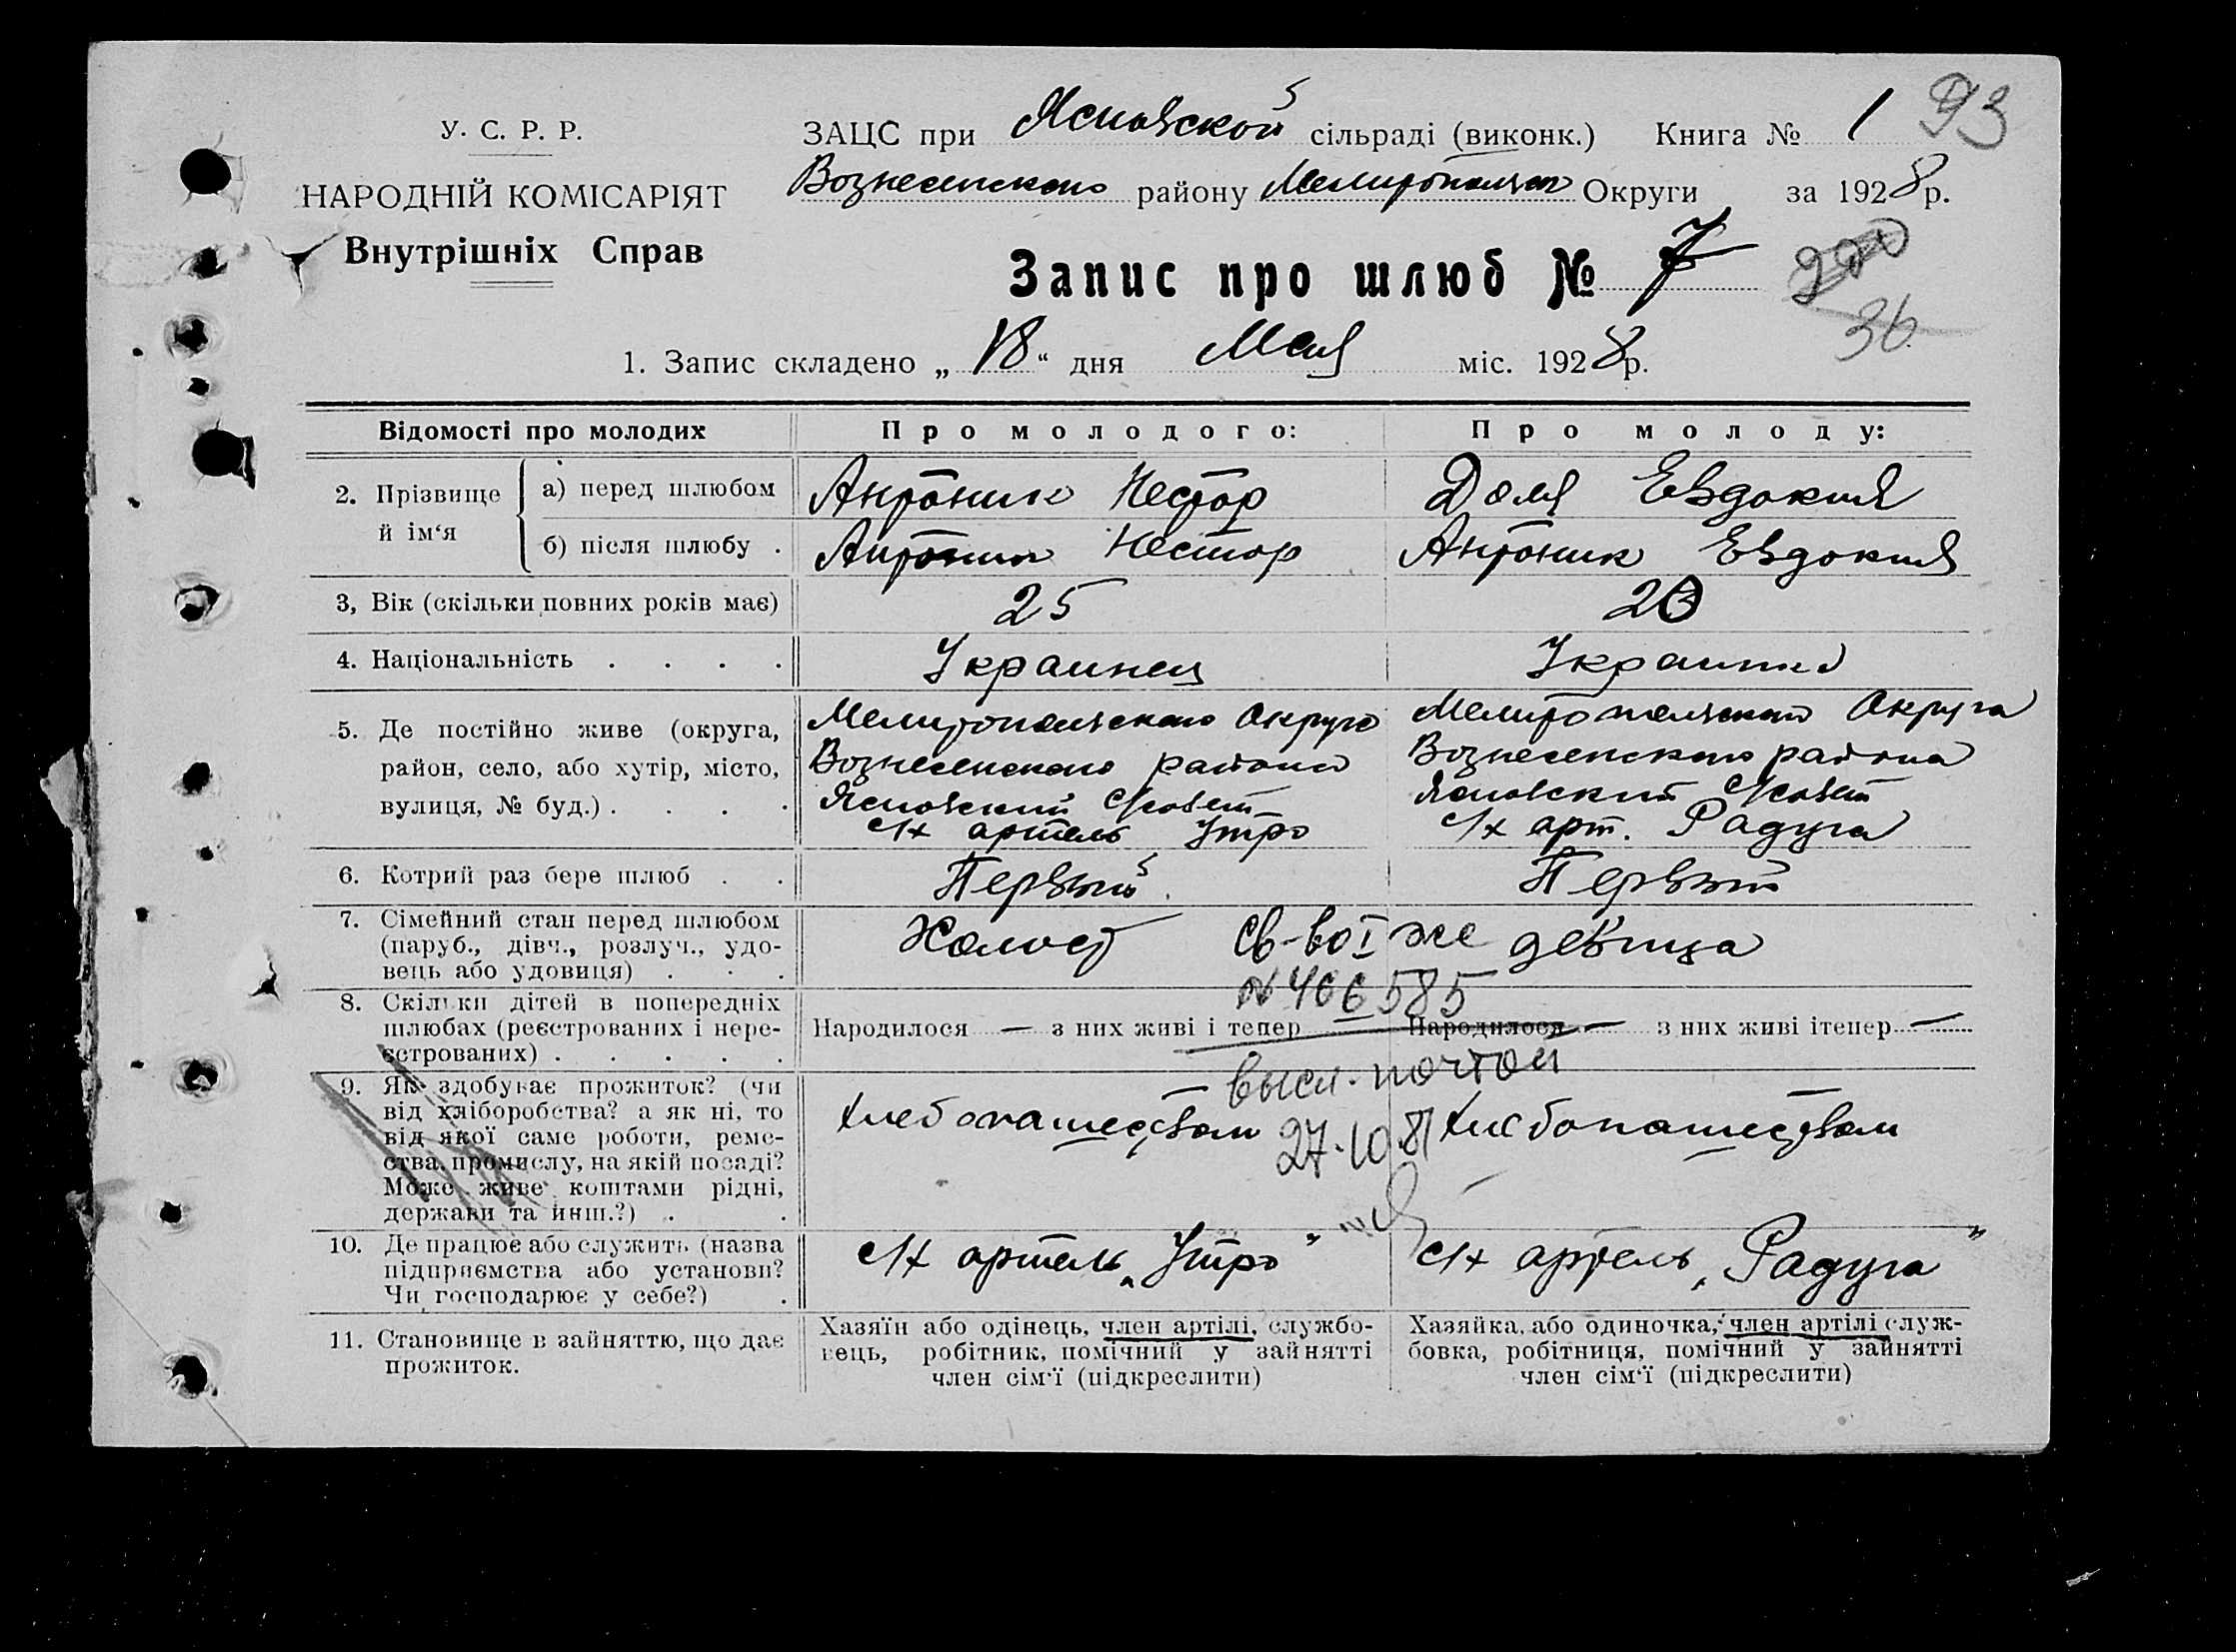 93
У. С. Р. Р.
НАРОДНІЙ КОМІСАРІЯТ
Внутрішніх Справ
ЗАЦС при Ясновской сільраді (виконк.) Книга № 1
Вознесенского району Мелитопольск Округи за 1928 р.
Запис про шлюб № 7
200
36
1. Запис складено „ 18 “ дня Мая міс. 1928 р.
Відомості про молодих Про молодого: Про молоду:
2. Прізвище й ім‘я а) перед шлюбом Антоник Нестор Доля Евдокия
б) після шлюбу . Антоник Нестор Антоник Евдокия
3, Вік (скільки повних років має) 25 20
4. Національність . . . . Украинец Украинка
5. Де постійно живе (округа, Мелитопольского Округа Мелитопольского Округа
район, село, або хутір, місто, Вознесенского района Вознесенского района
вулиця, № буд.) . . . . Ясновский С/совет Ясновский С/совет
с/х артель Утро с/х арт. Радуга
6. Котрий раз бере шлюб . . Первый Первый
7. Сімейний стан перед шлюбом
(паруб., дівч., розлуч., удо-
вець або удовиця) . . . Холост девица
Св-во I же
№ 466585
8. Скільки дітей в попередніх
шлюбах (реєстрованих і нере-
єстрованих) . . . . . Народилося — з них живі і тепер Народилося — з них живі ітепер —
высл. почтой
27.10.81
9. Як здобуває прожиток? (чи
від хліборобства? а як ні, то
від якої саме роботи, реме-
ства, промислу, на якій посаді?
Може живе коштами рідні,
держави та инш.?) . . Хлебопашеством Хлебопашеством
10. Де працює або служить (назва
підприємства або установи?
Чи господарює у себе?) . с/х артель „Утро" с/х артель „Радуга"
11. Становище в зайняттю, що дає
прожиток.
Хазяїн або одінець, член артілі, службо-
вець, робітник, помічний у зайнятті
член сім‘ї (підкреслити)
Хазяйка, або одиночка, член артілі служ-
бовка, робітниця, помічний у зайнятті
член сім‘ї (підкреслити)